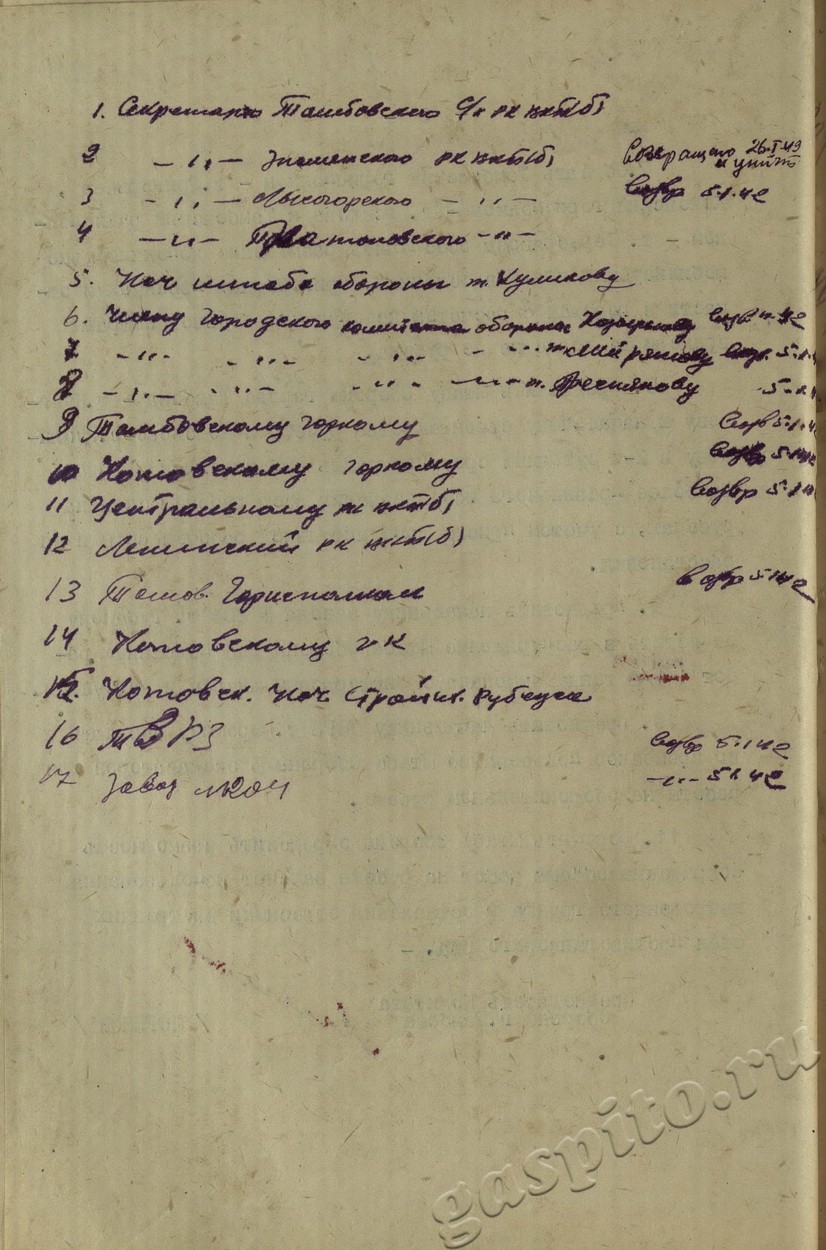 1. Секретарю Тамбовского с/х рк вкп(б)
2 -"- Знаменского рк вкп(б) Возвращено 26-I-49 и уничт
3 -"- Лысогорского -"- Возвр 5.1.42
4 -"- Платоновского -"-
5. Нач штаба обороны т. Куликову
6. Члену Городского комитета обороны
7 -"- -"- -"- -"- т. Возвр. 5.1.
8 -"- -"- -"- -"- т. 5.1.
9 Тамбовскому горкому Возв 5.1.4
10 Котовскому горкому Возвр
11 Центральному рк вкп(б) Возвр 5.1.4
12 Ленинский рк вкп(б)
13 Тамбов. Горисполком Возвр 5.1.42
14 Котовскому гк
15. Котовск. Нач Строит. рубежа
16 ТВРЗ Возвр 5.1.42
17 Завод -"- 5.1.42
gaspito.ru